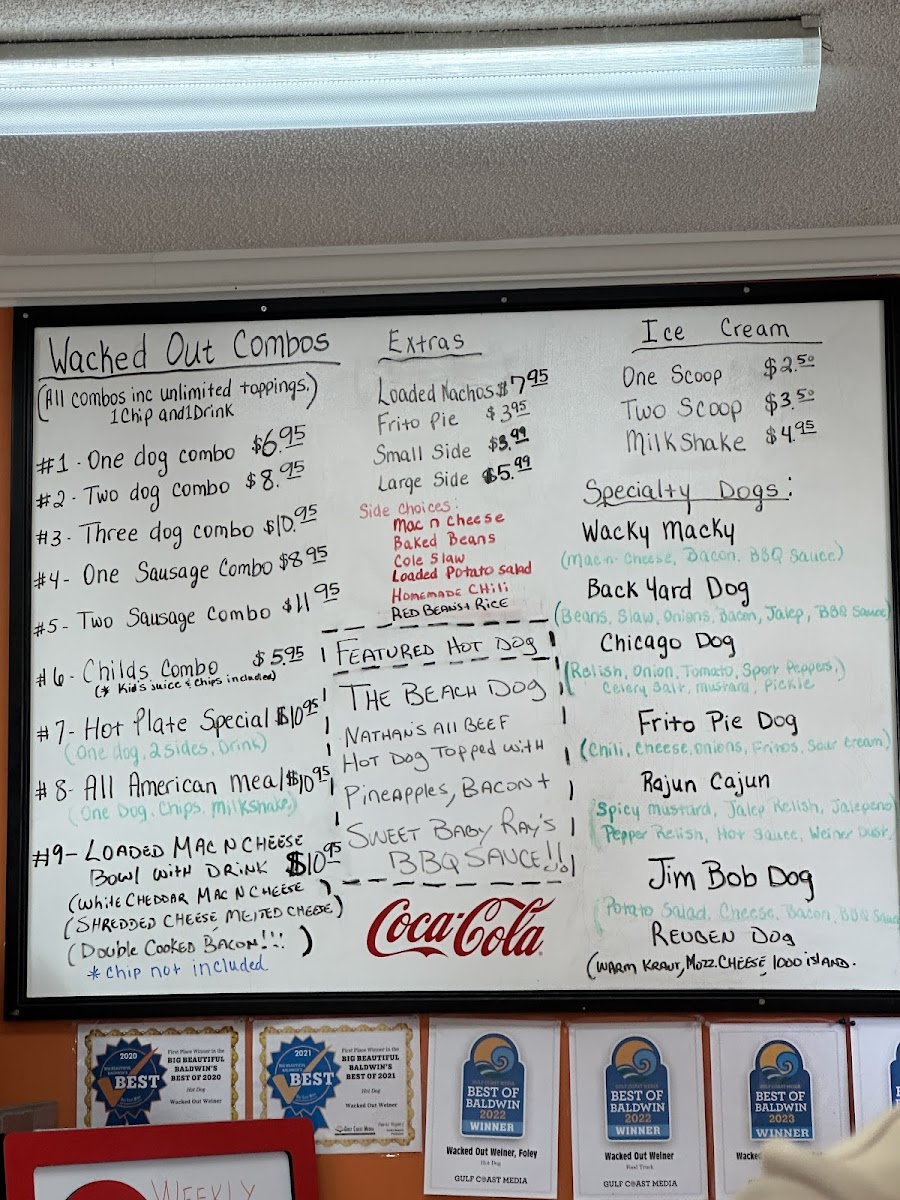 Wacked Out Combos
(All combos inc unlimited toppings,)
1Chip and 1Drink
#1 - One dog combo $6.95
#2 - Two dog combo $8.95
#3 - Three dog combo $10.95
#4 - One Sausage Combo $8.95
#5 - Two Sausage Combo $11.95
#6 - Childs Combo $5.95
(* Kid's Juice & Chips included)
#7 - Hot Plate Special $10.95
(One dog, 2 sides, Drink)
#8 - All American Meal $10.95
(One Dog, Chips, Milkshake)
#9 - LOADED MAC N CHEESE
BOWL WITH DRINK $10.95
(WHITE CHEDDAR MAC N CHEESE )
(SHREDDED CHEESE, MELTED CHEESE)
(Double Cooked BACON!!! )
* Chip not included
Extras
Loaded Nachos $7.95
Frito Pie $3.95
Small Side $3.99
Large Side $5.99
Side Choices:
Mac n Cheese
Baked Beans
Cole Slaw
Loaded Potato salad
HOMEMADE CHILI
RED BEANS + RICE
FEATURED HOT DOG
THE BEACH DOG
NATHAN'S All BEEF
HOT DOG TOPPED WITH
PINEAPPLES, BACON +
SWEET BABY RAY'S
BBQ SAUCE!!
Coca-Cola
Ice Cream
One Scoop $2.50
Two Scoop $3.50
MilkShake $4.95
Specialty Dogs:
Wacky Macky
(Mac n Cheese, Bacon, BBQ Sauce)
Back Yard Dog
(Beans, Slaw, Onions, Bacon, Jalep, BBQ Sauce)
Chicago Dog
(Relish, Onion, Tomato, Sport Peppers,)
Celery Salt, Mustard, Pickle
Frito Pie Dog
(Chili, Cheese, Onions, Fritos, Sour Cream)
Rajun Cajun
Spicy Mustard, Jalep Relish, Jalapeno
Pepper Relish, Hot Sauce, Weiner Dust.
Jim Bob Dog
(Potato Salad, Cheese, Bacon, BBQ Sauce
REUBEN DOG
(WARM KRAUT, MOZZ. CHEESE, 1000 ISLAND.
2020
BEST
First Place Winner in the
BIG BEAUTIFUL
BALDWIN'S
BEST OF 2020
Hot Dog
Wacked Out Weiner
2021
BEST
First Place Winner in the
BIG BEAUTIFUL
BALDWIN'S
BEST OF 2021
Hot Dog
Wacked Out Weiner
GULF COAST MEDIA
GULF COAST MEDIA
BEST OF
BALDWIN
2022
WINNER
Wacked Out Weiner, Foley
Hot Dog
GULF COAST MEDIA
GULF COAST MEDIA
BEST OF
BALDWIN
2022
WINNER
Wacked Out Weiner
Food Truck
GULF COAST MEDIA
GULF COAST MEDIA
BEST OF
BALDWIN
2023
WINNER
WEEKLY